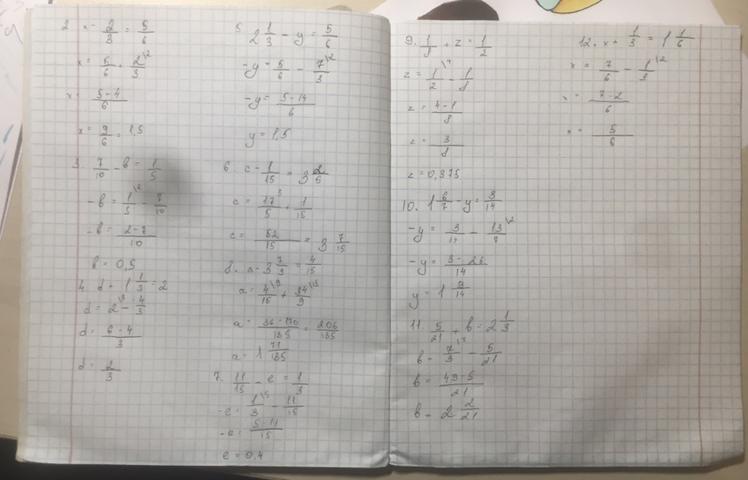 2 x - 2/3 = 5/6
x = 5/6 + 2/3 \2
x = 5-4/6
x = 9/6 = 1,5
3. 7/10 - b = 1/5
-b = 1/5 \2 - 7/10
-b = 2-7/10
b = 0,5
4. d + 1 1/3 = 2
d = 2 \3 - 4/3
d = 6-4/3
d = 2/3
5 2 1/3 - y = 5/6
-y = 5/6 - 7/3 \2
-y = 5-14/6
y = 1,5
6. c - 1/15 = 3 2/5
c = 17/5 \3 + 1/15
c = 52/15 = 3 7/15
a = 1 71/135
7. 11/15 - e = 1/3
-e = 1/3 \5 - 11/15
-e = 5-11/15
e = 0,4
9. 1/8 + z = 1/2
z = 1/2 \4 - 1/8
z = 4-1/8
z = 3/8
z = 0,375
10. 1 6/7 - y = 3/14
-y = 3/14 - 13/7 \2
-y = 3-26/14
y = 1 9/14
11. 5/21 + b = 2 1/3
b = 7/3 \7 - 5/21
b = 49-5/21
b = 2 2/21
12. x + 1/3 = 1 1/6
x = 7/6 - 1/3 \2
x = 7-2/6
x = 5/6